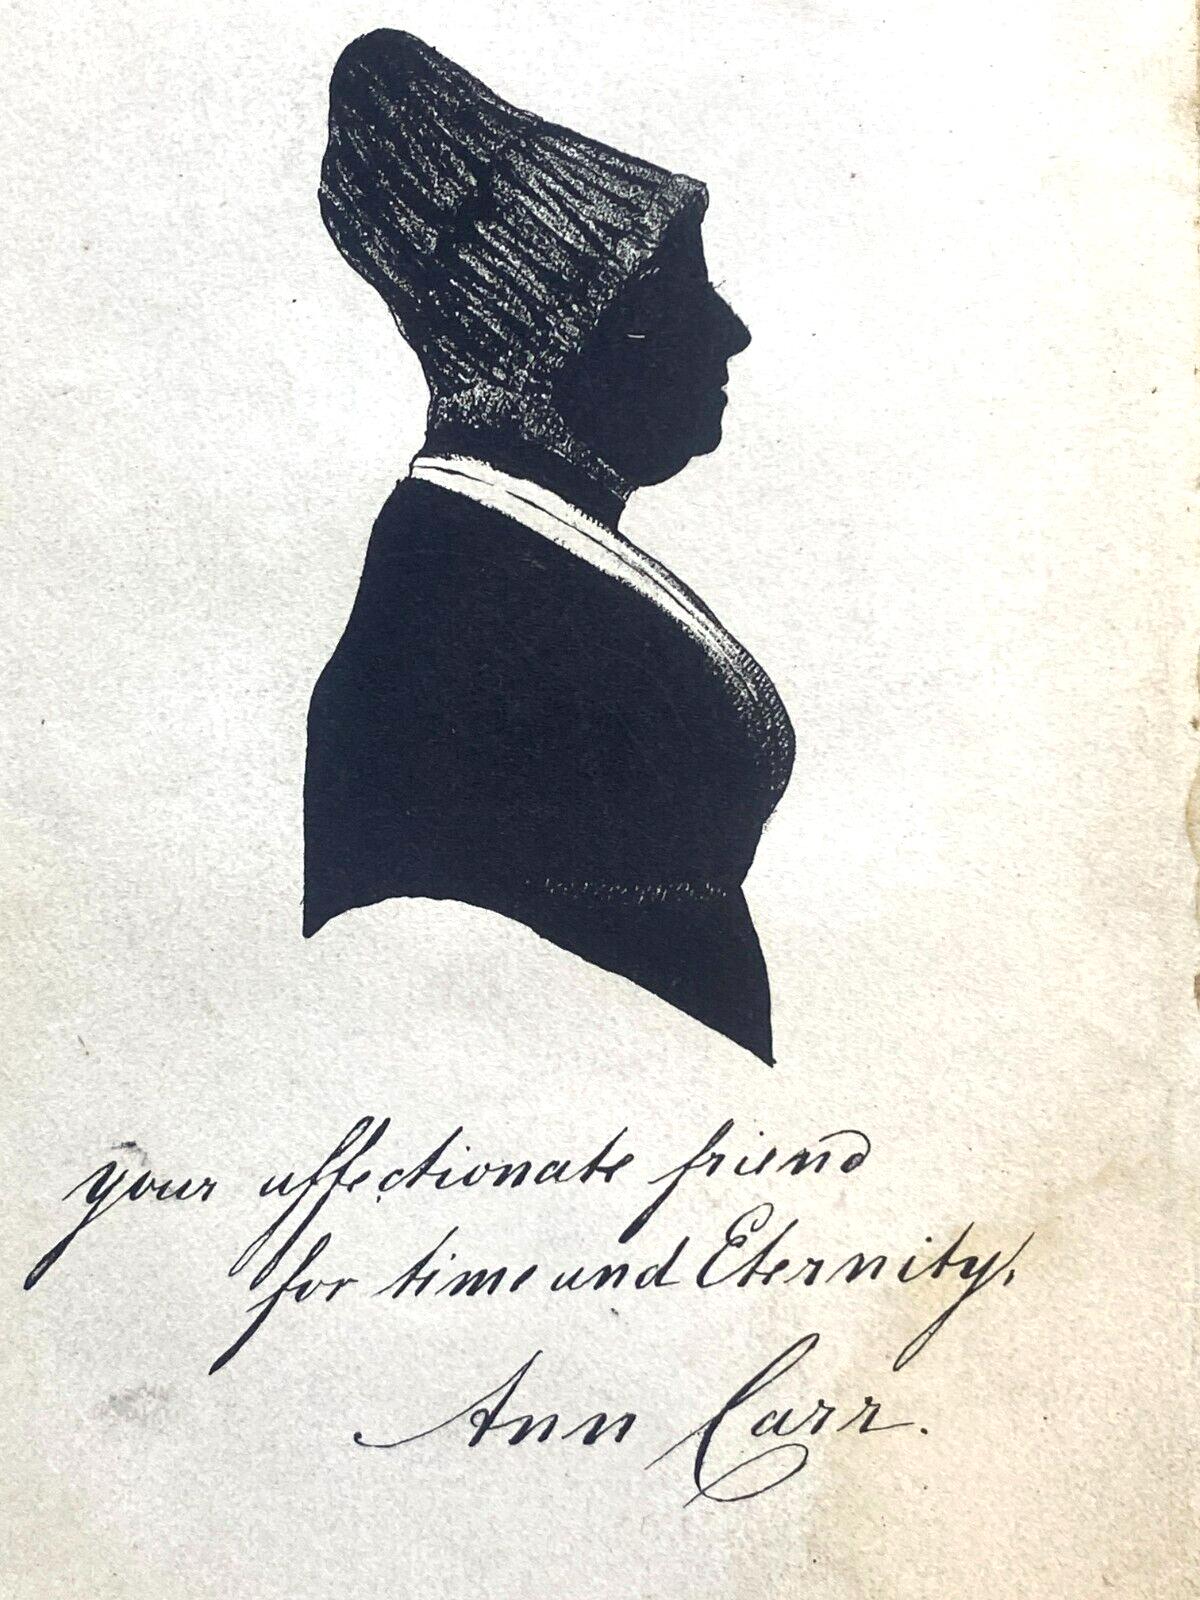 your affectionate friend
for time and Eternity.
Ann Carr.